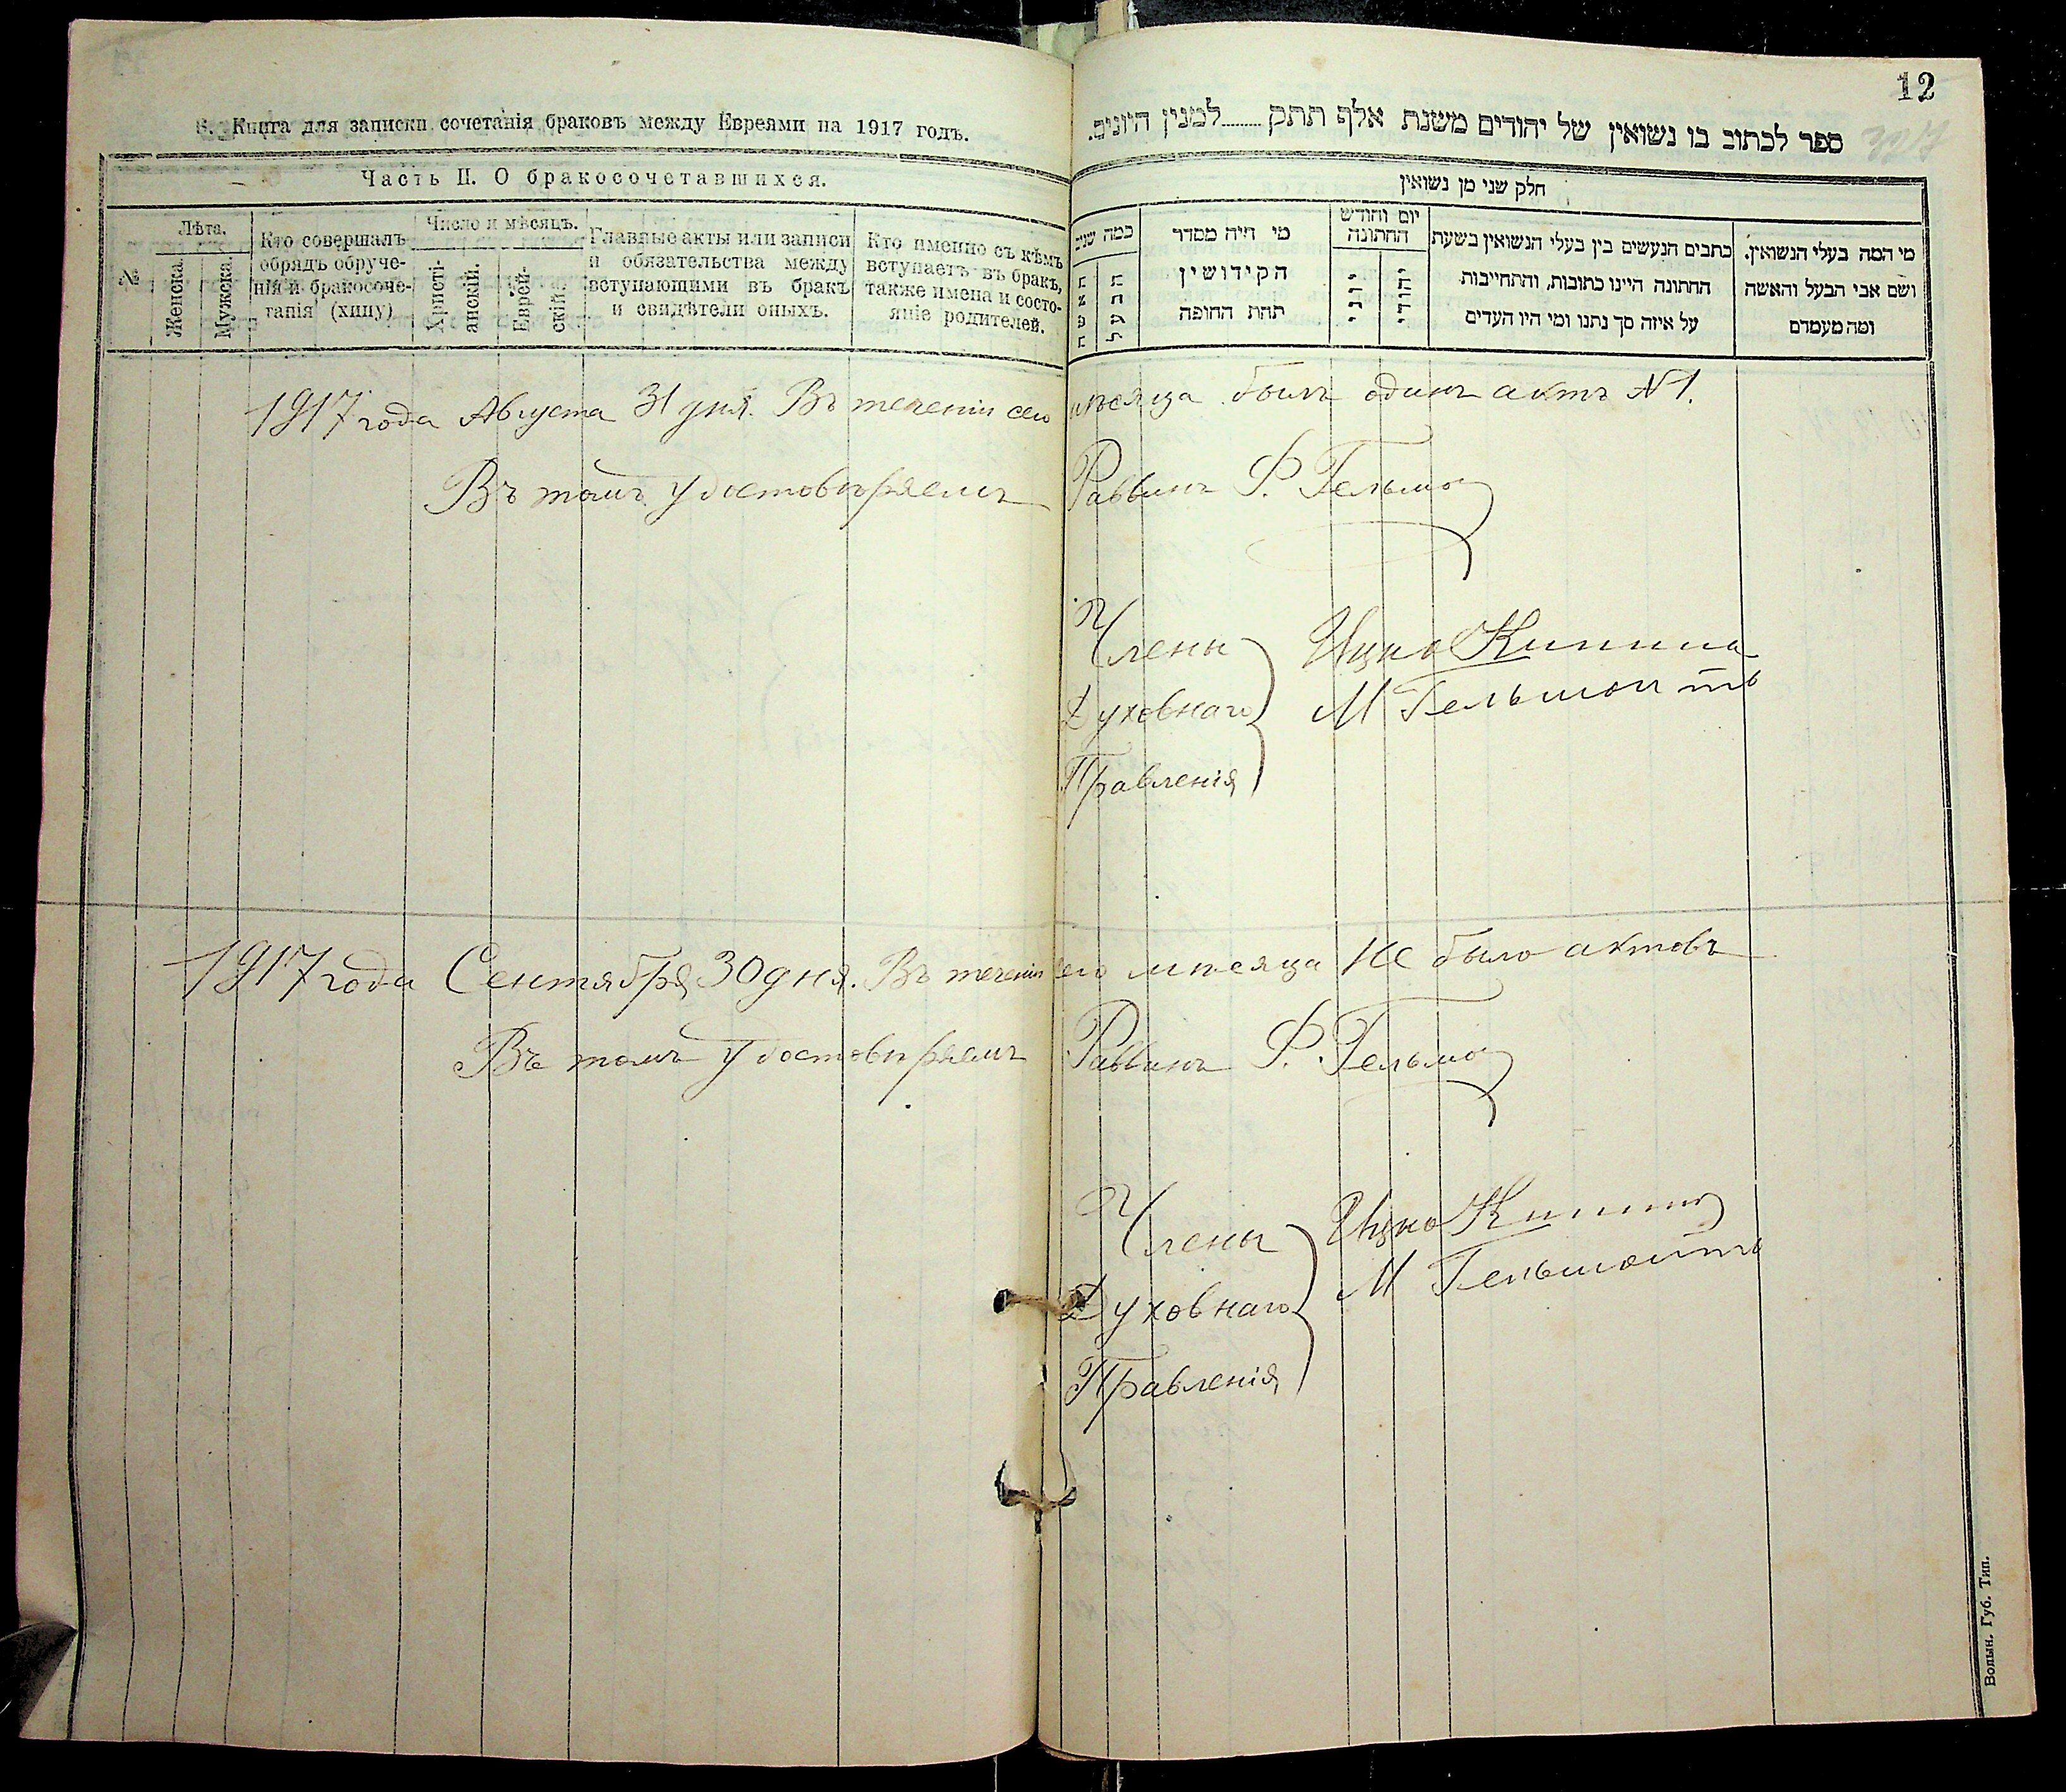 12
Б. Книга для записки сочетанія браковъ между Евреями на 1917 годъ.
Часть II. О бракосочетавшихся.
№
Лѣта.
Женска.
Мужска.
Кто совершалъ
обрядъ обруче-
нія и бракосоче-
танія (хипу)
Число и мѣсяцъ.
Христі-
анскій.
Еврей-
скій.
Главные акты или записи
и обязательства между
вступающими въ бракъ
и свидѣтели оныхъ.
Кто именно съ кѣмъ
вступаетъ въ бракъ,
также имена и состо-
яніе родителей.
ספר לכתוב בו נשואין של יהודים משנת אלף תתק למנין היונים.
חלק שני מן נשואין
מי המה בעלי הנשואין.
ושם אבי הבעל והאשה
ומה מעמדם
כתבים הנעשים בין בעלי הנשואין בשעת
החתונה היינו כתובות, והתחייבות
על איזה סך נתנו ומי היו העדים
יום וחודש
החתונה
יהודי
יוני
מי היה מסדר
הקידושין
תחת החופה
כמה שנים
1917 года Августа 31 дня. Въ теченіи сего мѣсяца былъ одинъ актъ №1.
Въ томъ удостовѣряемъ Раввинъ Ф. Гельма
Члены
Духовнаго
Правленія
Ицко
М Гельман
1917 года Сентября 30 дня. Въ теченіи сего мѣсяца не было актовъ
Въ томъ удостовѣряемъ Раввинъ Ф. Гельма
Члены
Духовнаго
Правленія
Ицко
М
Волын. Губ. Тип.